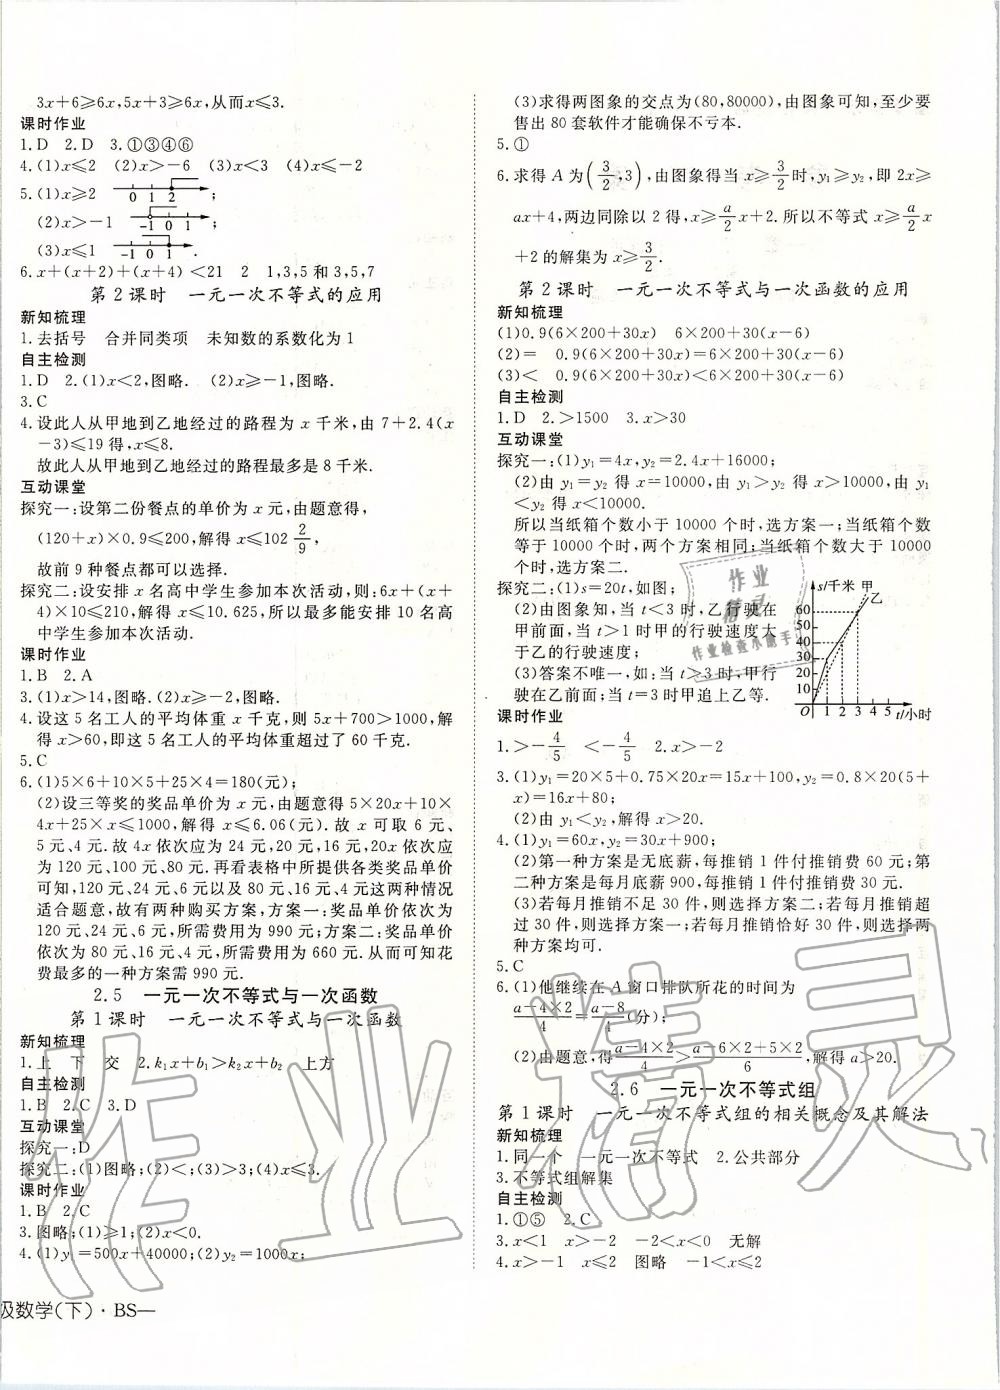 3x+6≥6x,5x+3≥6x,从而x≤3.
课时作业
1.D 2.D 3.①③④⑥
4.(1)x≤2 (2)x>-6 (3)x<3 (4)x≤-2
5.(1)x≥2 0 1 2 ;
(2)x>-1 -1 0 1 ;
(3)x≤1 -1 0 1 .
6.x+(x+2)+(x+4) <21 2 1,3,5 和 3,5,7
第2课时 一元一次不等式的应用
新知梳理
1.去括号 合并同类项 未知数的系数化为1
自主检测
1.D 2.(1)x<2,图略. (2)x≥-1,图略.
3.C
4.设此人从甲地到乙地经过的路程为 x 千米,由 7+2.4(x
-3)≤19 得,x≤8.
故此人从甲地到乙地经过的路程最多是 8 千米.
互动课堂
探究一:设第二份餐点的单价为 x 元,由题意得,
(120+x)×0.9≤200,解得 x≤102 2/9,
故前 9 种餐点都可以选择.
探究二:设安排 x 名高中学生参加本次活动,则:6x+(x+
4)×10≤210,解得 x≤10.625,所以最多能安排 10 名高
中学生参加本次活动.
课时作业
1.B 2.A
3.(1)x>14,图略.(2)x≥-2,图略.
4.设这 5 名工人的平均体重 x 千克,则 5x+700>1000,解
得 x>60,即这 5 名工人的平均体重超过了 60 千克.
5.C
6.(1)5×6+10×5+25×4=180(元);
(2)设三等奖的奖品单价为 x 元,由题意得 5×20x+10×
4x+25×x≤1000,解得 x≤6.06(元). 故 x 可取 6 元、
5 元、4 元. 故 4x 依次应为 24 元,20 元,16 元,20x 依次应
为 120 元、100 元、80 元. 再看表格中所提供各类奖品单价
可知,120 元、24 元、6 元以及 80 元、16 元、4 元这两种情况
适合题意,故有两种购买方案,方案一:奖品单价依次为
120 元、24 元、6 元,所需费用为 990 元;方案二:奖品单价
依次为 80 元、16 元、4 元,所需费用为 660 元. 由此可知花
费最多的一种方案需 990 元.
2.5 一元一次不等式与一次函数
第1课时 一元一次不等式与一次函数
新知梳理
1.上 下 交 2.k₁x+b₁>k₂x+b₂ 上方
自主检测
1.B 2.C 3.D
互动课堂
探究一:D
探究二:(1)图略;(2)<;(3)>3;(4)x≤3.
课时作业
1.B 2.C
3.图略;(1)≥1;(2)x<0.
4.(1)y₁=500x+40000;(2)y₂=1000x;
级数学(下)·BS—
(3)求得两图象的交点为(80,80000),由图象可知,至少要
售出 80 套软件才能确保不亏本.
5.①
6.求得 A 为(3/2,3),由图象得当 x≥3/2时,y₁≥y₂,即 2x≥
ax+4,两边同除以 2 得,x≥a/2x+2. 所以不等式 x≥a/2x
+2 的解集为 x≥3/2.
第2课时 一元一次不等式与一次函数的应用
新知梳理
(1)0.9(6×200+30x) 6×200+30(x-6)
(2)= 0.9(6×200+30x)=6×200+30(x-6)
(3)< 0.9(6×200+30x)<6×200+30(x-6)
自主检测
1.D 2.>1500 3.x>30
互动课堂
探究一:(1)y₁=4x,y₂=2.4x+16000;
(2)由 y₁=y₂ 得 x=10000,由 y₁>y₂ 得 x>10000,由 y₁
<y₂ 得 x<10000.
所以当纸箱个数小于 10000 个时,选方案一;当纸箱个数
等于 10000 个时,两个方案相同;当纸箱个数大于 10000
个时,选方案二.
探究二:(1)s=20t,如图;
(2)由图象知,当 t<3 时,乙行驶在
甲前面,当 t>1 时甲的行驶速度大
于乙的行驶速度;
(3)答案不唯一,如:当 t>3 时,甲行
驶在乙前面;当 t=3 时甲追上乙等.
s/千米 甲
乙
60
50
40
30
20
10
O 1 2 3 4 5 t/小时
课时作业
1.>-4/5 <-4/5 2.x>-2
3.(1)y₁=20×5+0.75×20x=15x+100,y₂=0.8×20(5+
x)=16x+80;
(2)由 y₁<y₂,解得 x>20.
4.(1)y₁=60x,y₂=30x+900;
(2)第一种方案是无底薪,每推销 1 件付推销费 60 元;第
二种方案是每月底薪 900,每推销 1 件付推销费 30 元.
(3)若每月推销不足 30 件,则选择方案二;若每月推销超
过 30 件,则选择方案一;若每月推销恰好 30 件,则选择两
种方案均可.
5.C
6.(1)他继续在 A 窗口排队所花的时间为
(a-4×2)/4=(a-8)/4(分);
(2)由题意,得(a-4×2)/4>(a-6×2+5×2)/6,解得 a>20.
2.6 一元一次不等式组
第1课时 一元一次不等式组的相关概念及其解法
新知梳理
1.同一个 一元一次不等式 2.公共部分
3.不等式组解集
自主检测
1.①⑤ 2.C
3.x<1 x>2 -2<x<0 无解
4.x>-1 x≤2 图略 -1<x≤2
作业
精灵
作业检查小助手
作业精灵